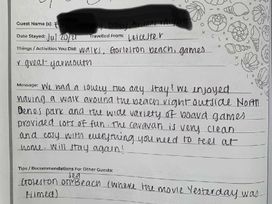 Guest Name (s):
Date Stayed: Jul 2021 Travelled From: Leicester
Things / Activities You Did: Walks, Gorleston beach, games
& great yarmouth
Message: We had a lovely two day stay! We enjoyed
having a walk around the beach right outside North
Denes park and the wide variety of board games
provided lots of fun. The caravan is very clean
and cosy with everything you need to feel at
home. Will stay again!
Tips / Recommendations For Other Guests:
sea
Gorleston on beach (where the movie Yesterday was
filmed)